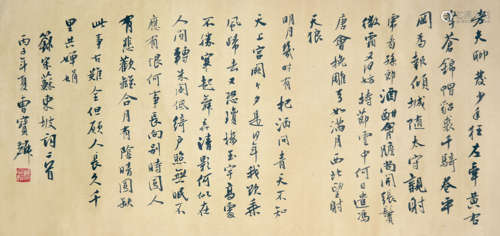 老夫聊發少年狂左牽黃右
擎蒼錦帽貂裘千騎卷平
岡為報傾城隨太守親射
虎看孫郎酒酣胸膽尚開張鬢
微霜又何妨持節雲中何日遣馮
唐會挽雕弓如滿月西北望射
天狼
明月幾時有把酒問青天不知
天上宮闕今夕是何年我欲乘
風歸去又恐瓊樓玉宇高處
不勝寒起舞弄清影何似在
人間轉朱閣低綺戶照無眠不
應有恨何事長向別時圓人
有悲歡離合月有陰晴圓缺
此事古難全但願人長久千
里共嬋娟
錄宋蘇東坡詞二首
丙子年夏曹寶麟